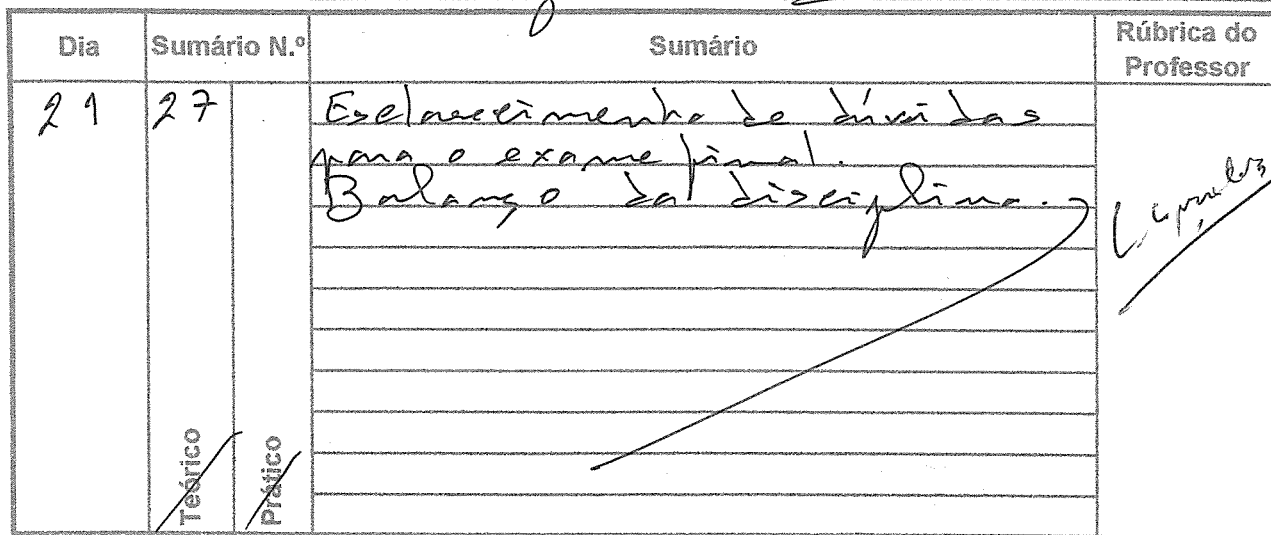 Dia Sumário N.º Sumário Rúbrica do Professor
21 27 Esclarecimento de dúvidas
para o exame final.
Balanço da disciplina.
Teórico Prático